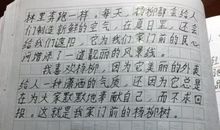 林里奔跑一样。每天，杨柳都会给人
们制造新鲜的空气，在夏日里，还会
给我们遮阳，它为我们家门前的民心
河增添了一道靓丽的风景线。
我喜欢杨柳，因为它美丽的外表
给人一种潇洒的气质，还因为它总是
在为大家默默地奉献自己，而不求回
报，这就是我家门前的杨柳树。